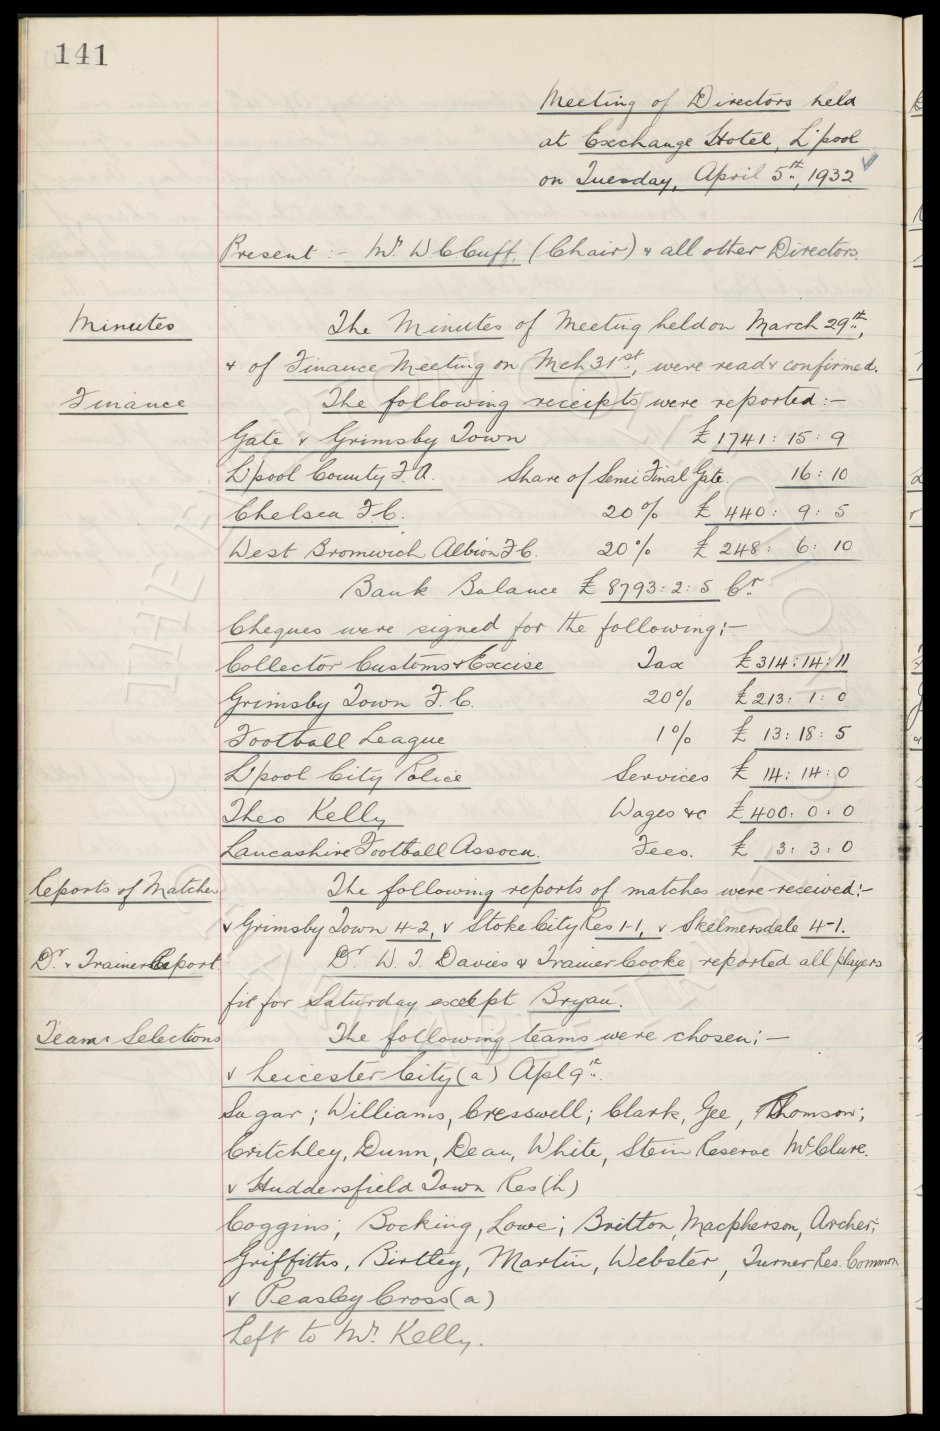 141
Meeting of Directors held
at Exchange Hotel, L'pool
on Tuesday, April 5th, 1932
Present :- Mr. W. C. Cuff, (Chair) & all other Directors.
Minutes The Minutes of Meeting held on March 29th,
& of Finance Meeting on Mch 31st, were read & confirmed.
Finance The following receipts were reported :-
Gate v Grimsby Town £1741 : 15 : 9
L'pool County F.A. Share of Semi Final Gate. 16 : 10
Chelsea F.C. 20% £ 440 : 9 : 5
West Bromwich Albion F.C. 20% £ 248 : 6 : 10
Bank Balance £ 8793 : 2 : 5 Cr
Cheques were signed for the following :-
Collector Customs & Excise Tax £314 : 14 : 11
Grimsby Town F.C. 20% £213 : 1 : 0
Football League 1% £ 13 : 18 : 5
L'pool City Police Services £ 14 : 14 : 0
Theo Kelly Wages &c £400 : 0 : 0
Lancashire Football Assocn. Fees. £ 3 : 3 : 0
Reports of Matches The following reports of matches were received :-
v Grimsby Town 4-2, v Stoke City Res 1-1, v Skelmersdale 4-1.
Dr. & Trainer Report Dr. W. J. Davies & Trainer Cooke reported all players
fit for Saturday except Bryan.
Team Selections The following teams were chosen :-
v Leicester City (a) Apl 9th.
Sagar ; Williams, Cresswell ; Clark, Gee, Thomson ;
Critchley, Dunn, Dean, White, Stein Reserve McClure.
v Huddersfield Town Res (h)
Coggins ; Bocking, Lowe ; Britton, Macpherson, Archer ;
Griffiths, Birtley, Martin, Webster, Turner Res. Common
v Peasley Cross (a)
Left to Mr. Kelly.